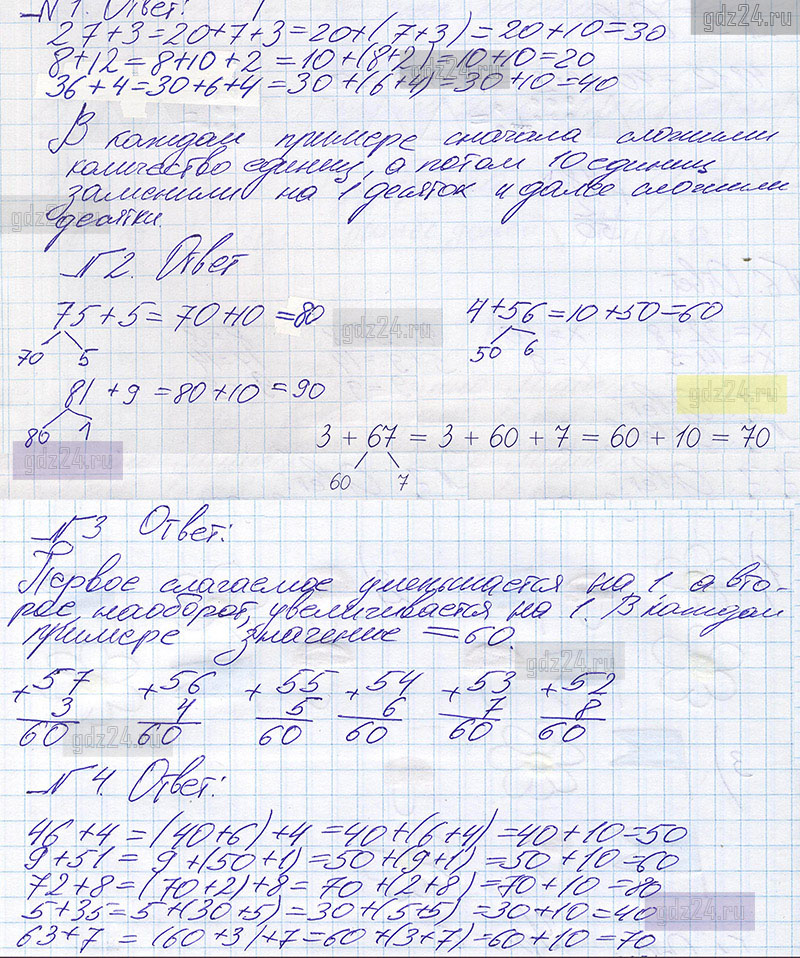 №1. Ответ:
27+3=20+7+3=20+(7+3)=20+10=30
8+12=8+10+2=10+(8+2)=10+10=20
36+4=30+6+4=30+(6+4)=30+10=40
В каждом примере сначала сложили
количество единиц, а потом 10 единиц
заменили на 1 десяток и далее сложили
десятки.
№2. Ответ
75+5=70+10=80
70 5
4+56=10+50=60
50 6
81+9=80+10=90
80 1
3 + 67 = 3 + 60 + 7 = 60 + 10 = 70
60 7
№3 Ответ:
Первое слагаемое уменьшается на 1, а вто-
рое, наоборот, увеличивается на 1. В каждом
примере значение =60.
+57 +56 +55 +54 +53 +52
3 4 5 6 7 8
60 60 60 60 60 60
№4. Ответ:
46+4=(40+6)+4=40+(6+4)=40+10=50
9+51=9+(50+1)=50+(9+1)=50+10=60
72+8=(70+2)+8=70+(2+8)=70+10=80
5+35=5+(30+5)=30+(5+5)=30+10=40
63+7=(60+3)+7=60+(3+7)=60+10=70
gdz24.ru
gdz24.ru
gdz24.ru
gdz24.ru
gdz24.ru
gdz24.ru
gdz24.ru
gdz24.ru
gdz24.ru